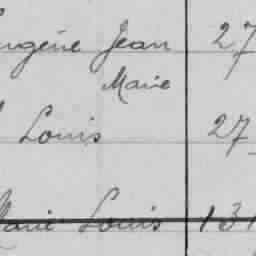 Eugène Jean 27
Marie
Louis 27
Marie Louis 131